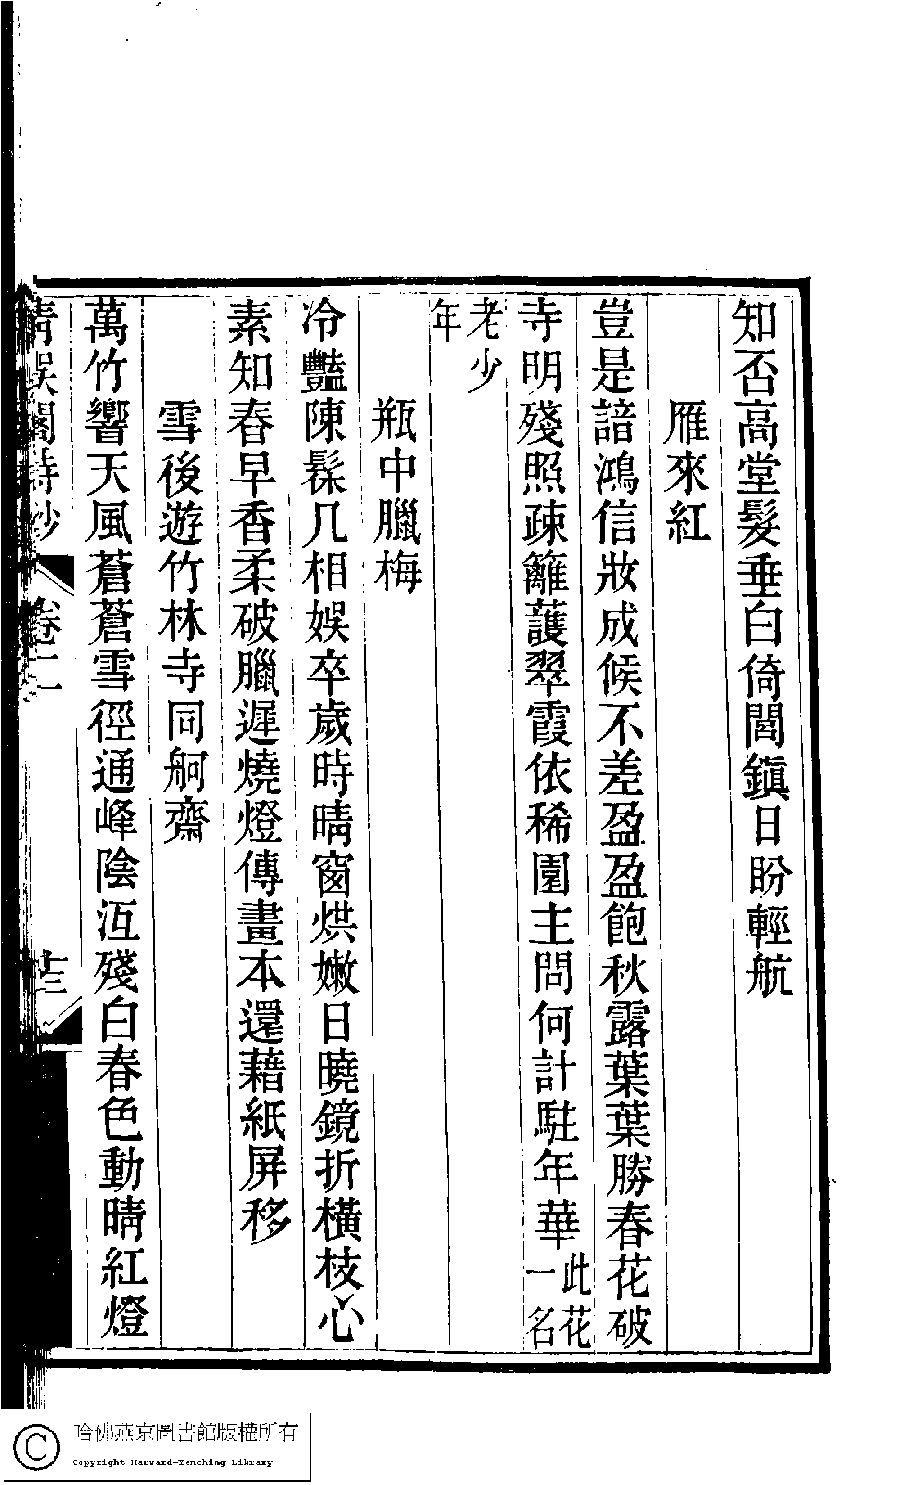 知否高堂髮垂白倚閭鎮日盼輕航
雁來紅
豈是諳鴻信妝成候不差盈盈飽秋露葉葉勝春花破
寺明殘照疎籬護翠霞依稀園主問何計駐年華此花一名
老少年
瓶中臘梅
冷豔陳髹几相娛卒歲時晴窗烘嫩日曉鏡折橫枝心
素知春早香柔破臘遲燒燈傳畫本還藉紙屏移
雪後遊竹林寺同舸齋
萬竹響天風蒼蒼雪徑通峰陰沍殘白春色動晴紅燈
清娛閣詩鈔
卷二
十三
哈佛燕京圖書館版權所有
Copyright Harvard-Yenching Library